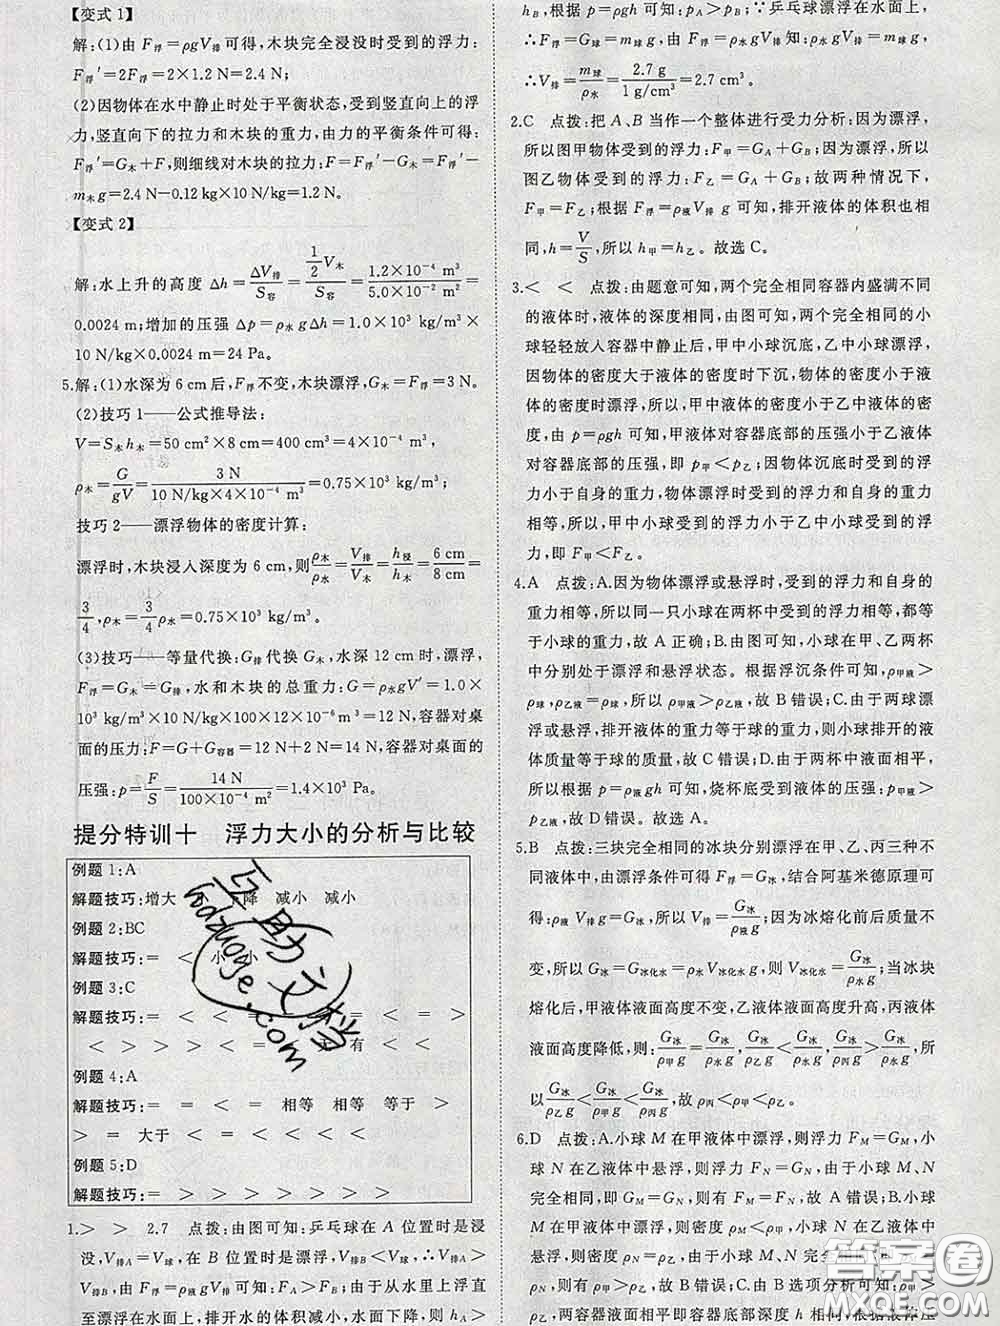 【变式 1】
解:(1)由 F浮=ρgV排可得,木块完全浸没时的浮力:
F浮′=2F浮=2×1.2 N=2.4 N;
(2)因物体在水中静止时处于平衡状态,受到竖直向上的浮
力,竖直向下的拉力和木块的重力,由力的平衡条件可得:
F浮′=G木+F,则细线对木块的拉力:F=F浮′-G木=F浮′-
m木g=2.4 N-0.12 kg×10 N/kg=1.2 N。
【变式 2】
解:水上升的高度 Δh=ΔV排/S容=(1/2)V木/S容=1.2×10⁻⁴ m³/5.0×10⁻² m²=
0.0024 m;增加的压强 Δp=ρ水gΔh=1.0×10³ kg/m³×
10 N/kg×0.0024 m=24 Pa。
5.解:(1)水深为 6 cm后,F浮不变,木块漂浮,G木=F浮=3 N。
(2)技巧 1——公式推导法:
V=S木h木=50 cm²×8 cm=400 cm³=4×10⁻⁴ m³,
ρ木=G/gV=3 N/(10 N/kg×4×10⁻⁴ m³)=0.75×10³ kg/m³;
技巧 2——漂浮物体的密度计算:
漂浮时,木块浸入深度为 6 cm,则ρ木/ρ水=V排/V木=h浸/h木=6 cm/8 cm=
3/4,ρ木=3/4ρ水=0.75×10³ kg/m³;
(3)技巧——等量代换:G排代换G木,水深 12 cm时,漂浮,
F浮=G木=G排,水和木块的总重力:G=ρ水gV′=1.0×
10³ kg/m³×10 N/kg×100×12×10⁻⁶ m³=12 N,容器对桌
面的压力:F=G+G容器=12 N+2 N=14 N,容器对桌面的
压强:p=F/S=14 N/(100×10⁻⁴ m²)=1.4×10³ Pa。
提分特训十 浮力大小的分析与比较
例题 1:A
解题技巧:增大 降 减小 减小
例题 2:BC
解题技巧:= < 小 小
例题 3:C
解题技巧:= = < < = < = >
< > > > < 有 < <
例题 4:A
解题技巧:= = < = 相等 相等 等于 >
> = 大于 < = < < < <
例题 5:D
解题技巧:= > > > > > > >
1.> > 2.7 点拨:由图可知:乒乓球在 A 位置时是浸
没,V排A=V球,在 B 位置时是漂浮,V排B<V球,∴V排A>
V排B,根据F浮=ρ水gV排可知:F浮A>F浮B;由于从水里上浮直
至漂浮在水面上,排开水的体积减小,水面下降,则hA>
hB,根据 p=ρgh 可知:pA>pB;∵乒乓球漂浮在水面上,
∴F浮=G球=m球g,由 F浮=ρ水gV排知:ρ水gV排=m球g,
∴V排=m球/ρ水=2.7 g/(1 g/cm³)=2.7 cm³。
2.C 点拨:把 A、B 当作一个整体进行受力分析;因为漂浮,
所以图甲物体受到的浮力:F甲=GA+GB;因为漂浮,所以
图乙物体受到的浮力:F乙=GA+GB;故两种情况下,
F甲=F乙;根据F浮=ρ液V排g可知,排开液体的体积也相
同,h=V/S,所以h甲=h乙。故选 C。
3.< < 点拨:由题意可知,两个完全相同容器内盛满不同
的液体时,液体的深度相同,由图可知,两个完全相同的小
球轻轻放入容器中静止后,甲中小球沉底,乙中小球漂浮,
因物体的密度大于液体的密度时下沉,物体的密度小于液
体的密度时漂浮,所以,甲中液体的密度小于乙中液体的密
度,由 p=ρgh 可知,甲液体对容器底部的压强小于乙液体
对容器底部的压强,即 p甲<p乙;因物体沉底时受到的浮力
小于自身的重力,物体漂浮时受到的浮力和自身的重力
相等,所以,甲中小球受到的浮力小于乙中小球受到的浮
力,即 F甲<F乙。
4.A 点拨:A.因为物体漂浮或悬浮时,受到的浮力和自身的
重力相等,所以同一只小球在两杯中受到的浮力相等,都等
于小球的重力,故 A 正确;B.由图可知,小球在甲、乙两杯
中分别处于漂浮和悬浮状态。根据浮沉条件可知,ρ甲液>
ρ球,ρ乙液=ρ球,所以,ρ甲液>ρ乙液,故 B 错误;C.由于两球漂
浮或悬浮,排开液体的重力等于球的重力,所以小球排开的液
体质量等于球的质量,故 C 错误;D.由于两杯中液面相平,
所以,根据 p=ρ液gh 可知,烧杯底受到液体的压强,p甲液>
p乙液,故 D 错误。故选 A。
5.B 点拨:三块完全相同的冰块分别漂浮在甲、乙、丙三种不
同液体中,由漂浮条件可得 F浮=G冰,结合阿基米德原理可
得:ρ液V排g=G冰,所以 V排=G冰/ρ液g;因为冰熔化前后质量不
变,所以G冰=G冰化水=ρ水V冰化水g,则V冰化水=G冰/ρ水g;当冰块
熔化后,甲液体液面高度不变,乙液体液面高度升高,丙液体
液面高度降低,则:G冰/ρ甲g=G冰/ρ水g,G冰/ρ乙g<G冰/ρ水g,G冰/ρ丙g>G冰/ρ水g,所
以G冰/ρ乙g<G冰/ρ甲g<G冰/ρ丙g,故ρ丙<ρ甲<ρ乙。
6.D 点拨:A.小球 M 在甲液体中漂浮,则浮力 FM=GM,小
球 N 在乙液体中悬浮,则浮力 FN=GN,由于小球 M、N
完全相同,即GM=GN,则有FM=FN,故 A 错误;B.小球M
在甲液体中漂浮,则有密度ρM<ρ甲,小球 N 在乙液体中
悬浮,则密度ρN=ρ乙,由于小球 M、N 完全相同,则ρ甲>
ρ乙,故 B 错误;C.由 B 选项分析可知:ρ甲>
ρ乙,两容器液面相平即容器底部深度 h 相同,根据液体压
互助文档
huzuoge.com
答案圈
MXQE.COM